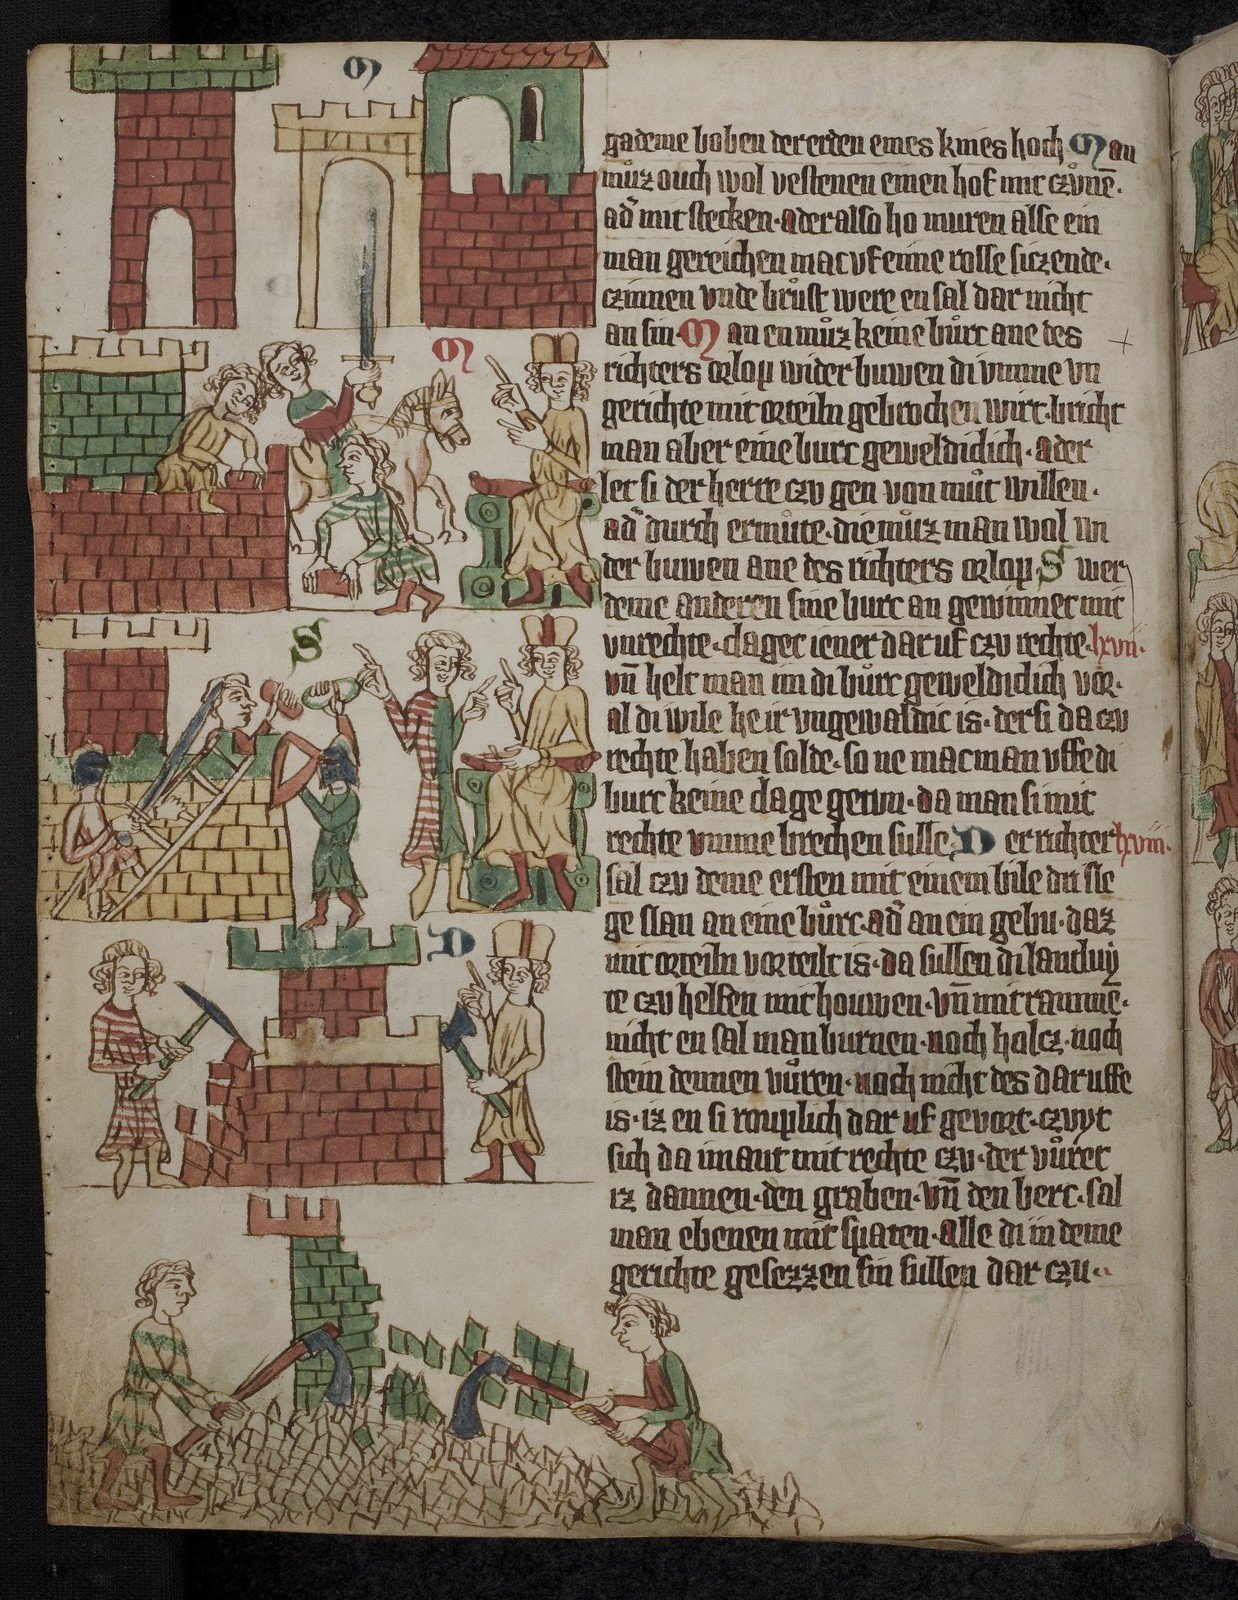 M
M
S
D
gademe boben der erden eines knies hoch Man
můz ouch wol vestenen einen hof mit czůnē.
ad̄ mit stecken. ader also ho muren alse ein
man gereichen mac uf eime rosse siczende.
czinnen vnde brůst were en sal dar nicht
an sin. Man en můz keine bůrc ane des
richters orlop wider buwen di vmme vn
gerichte mit orteiln gebrochen wirt. bricht
man aber eine burc geweldiclich. ader
let si der herre czu gen von můt willen.
ad̄ durch ermůte. die můz man wol vn
der buwen ane des richters orlop. S wer
deme anderen sine burc an gewinnet mit
vnrechte. daget iener dar uf czu rechte. lxvii.
vn̄ helt man im di bůrc geweldiclich vor.
al di wile he ir vngewaldic is. der si da czu
rechte haben solde. so ne mac man uffe di
burc keine dage getun. da man si mit
rechte vmme brechen sulle. D er richter lxviii.
sal czu deme ersten mit eineme bile dri sle
ge slan an eine bůrc. ad̄ an ein gebu. daz
mit orteiln vorteilt is. da sullen di lantluy
te czu helfen mit houwen. vn̄ mit ramme̅.
nicht en sal man burnen. noch holcz. noch
stein dennen vůren. noch nicht des dar uffe
is. iz en si rouplich dar uf gevort. czvyt
sich da iman mit rechte czu. der vůret
iz dannen. den graben. vn̄ den berc. sal
man ebenen mit spaten. alle di in deme
gerichte gesezzen sin sullen dar czu.